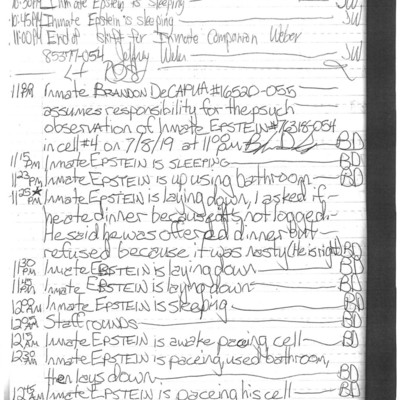 10:30PM Inmate Epstein is sleeping SW
10:45PM Inmate Epstein is sleeping SW
11:00PM End of shift for Inmate Companion Weber SW
85377-054 Jeffrey Weber
11:00PM Inmate BRANDON DeCAPUA #16520-055
assumes responsibility for the psych
observation of Inmate EPSTEIN #76318-054
in cell #4 on 7/8/19 at 11:00pm BD
11:15PM Inmate EPSTEIN is SLEEPING BD
11:23PM Inmate EPSTEIN is up using bathroom BD
11:25*PM Inmate EPSTEIN is laying down, I asked if
he ate dinner because it's not logged.
He said he was offered dinner but
refused because it was nasty (He is right) BD
11:30PM Inmate EPSTEIN is laying down BD
11:45PM Inmate EPSTEIN is laying down BD
12:00AM Inmate EPSTEIN is Sleeping BD
Staff rounds BD
12:15AM Inmate EPSTEIN is awake pacing cell BD
12:30AM Inmate EPSTEIN is pacing, used bathroom,
then lays down. BD
12:45AM Inmate EPSTEIN is pacing his cell BD